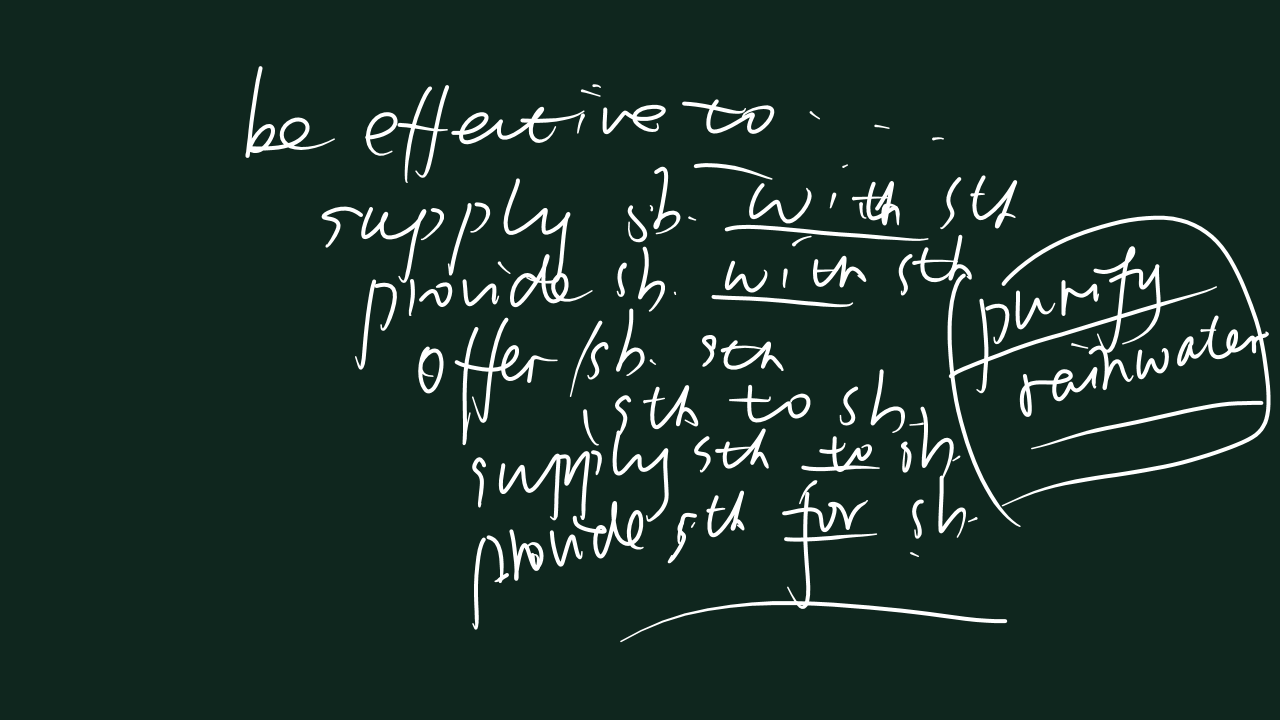 be effective to . . .
supply sb. with sth
provide sb. with sth
offer sb. sth
sth to sb.
supply sth to sb.
provide sth for sb.
purify
rainwater